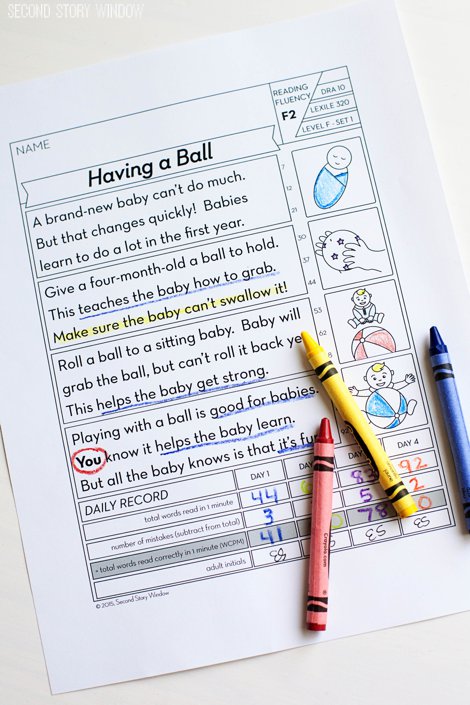 SECOND STORY WINDOW
NAME
READING FLUENCY
F2
DRA 10
LEXILE 320
LEVEL F - SET 1
Having a Ball
A brand-new baby can't do much.
But that changes quickly! Babies
learn to do a lot in the first year.
7
12
21
Give a four-month-old a ball to hold.
This teaches the baby how to grab.
Make sure the baby can't swallow it!
30
37
44
Roll a ball to a sitting baby. Baby will
grab the ball, but can't roll it back ye
This helps the baby get strong.
53
62
Playing with a ball is good for babies.
You know it helps the baby learn.
But all the baby knows is that it's fu
DAILY RECORD
DAY 1
DAY 4
total words read in 1 minute
44
83
92
number of mistakes (subtract from total)
3
5
2
= total words read correctly in 1 minute (WCPM)
41
78
adult initials
© 2015, Second Story Window
Crayola.com